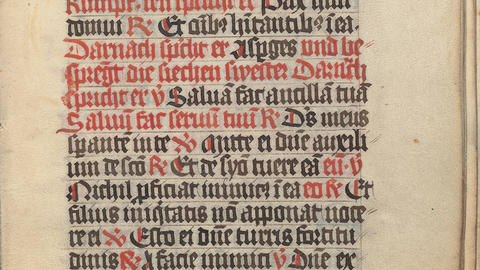 kumpt. den spricht er Pax huic
domui R Et om̄ib; hītantib; ī ea.
Darnach spͥcht er Asp̄ges vnd be
spreñgt die siechen swester Darnāch
spricht er v̄ Saluā fac ancillā tuā
Saluū fac seruū tuū R Ds meus
sperantē in te v̄ Mitte ei dn̄e auxili
um de sc̄o R Et de syō tuere eā eū v̄
Nichil p̄ficiat inimic9 ī ea eo R Et
filius iniq̄tatis nō apponat noce
re ei v̄ Esto ei dn̄e turris fortitu
dinis R A facie inimici v̄ Dn̄e ex